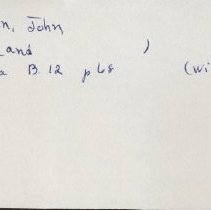 n, John
and )
a B. 12 p 68 (wi